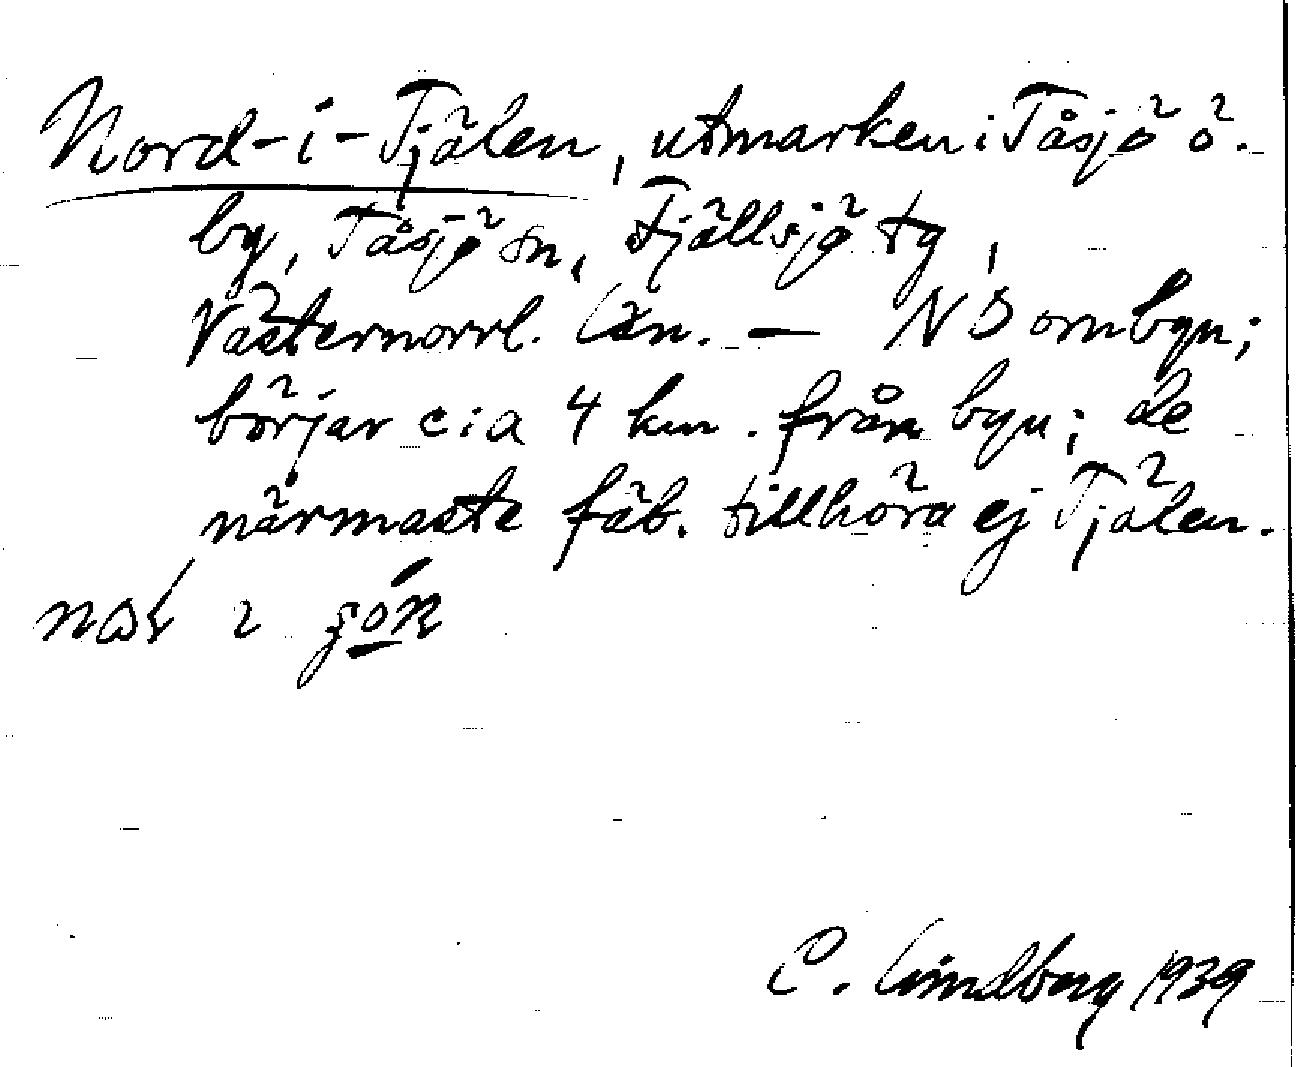 Nord-i-Tjälen, utmarken i Tåsjö ö.
by, Tåsjö sn, Fjällsjö tg,
Västernorrl. län. — NÖ om byn;
börjar c:a 4 km. från byn; de
närmaste fäb. tillhöra ej Tjälen.
C. Lindberg 1939